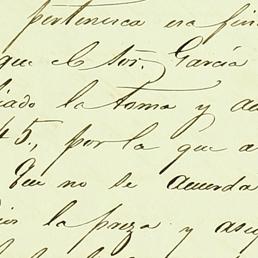 pertenezca esa fin
que el Sor. García
iado la toma y ad
45, por la que a
Vm no se acuerda
la preza y asi